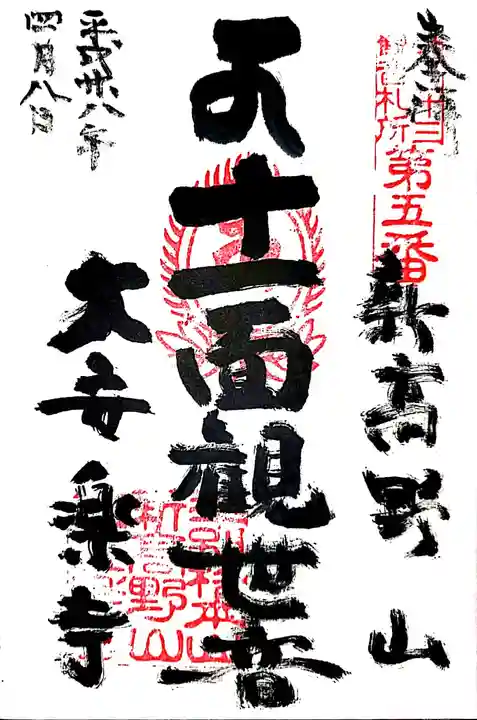 奉拝
新高野山
十一面観世音
大安楽寺
平成廿八年
四月八日
第五番
新高野山